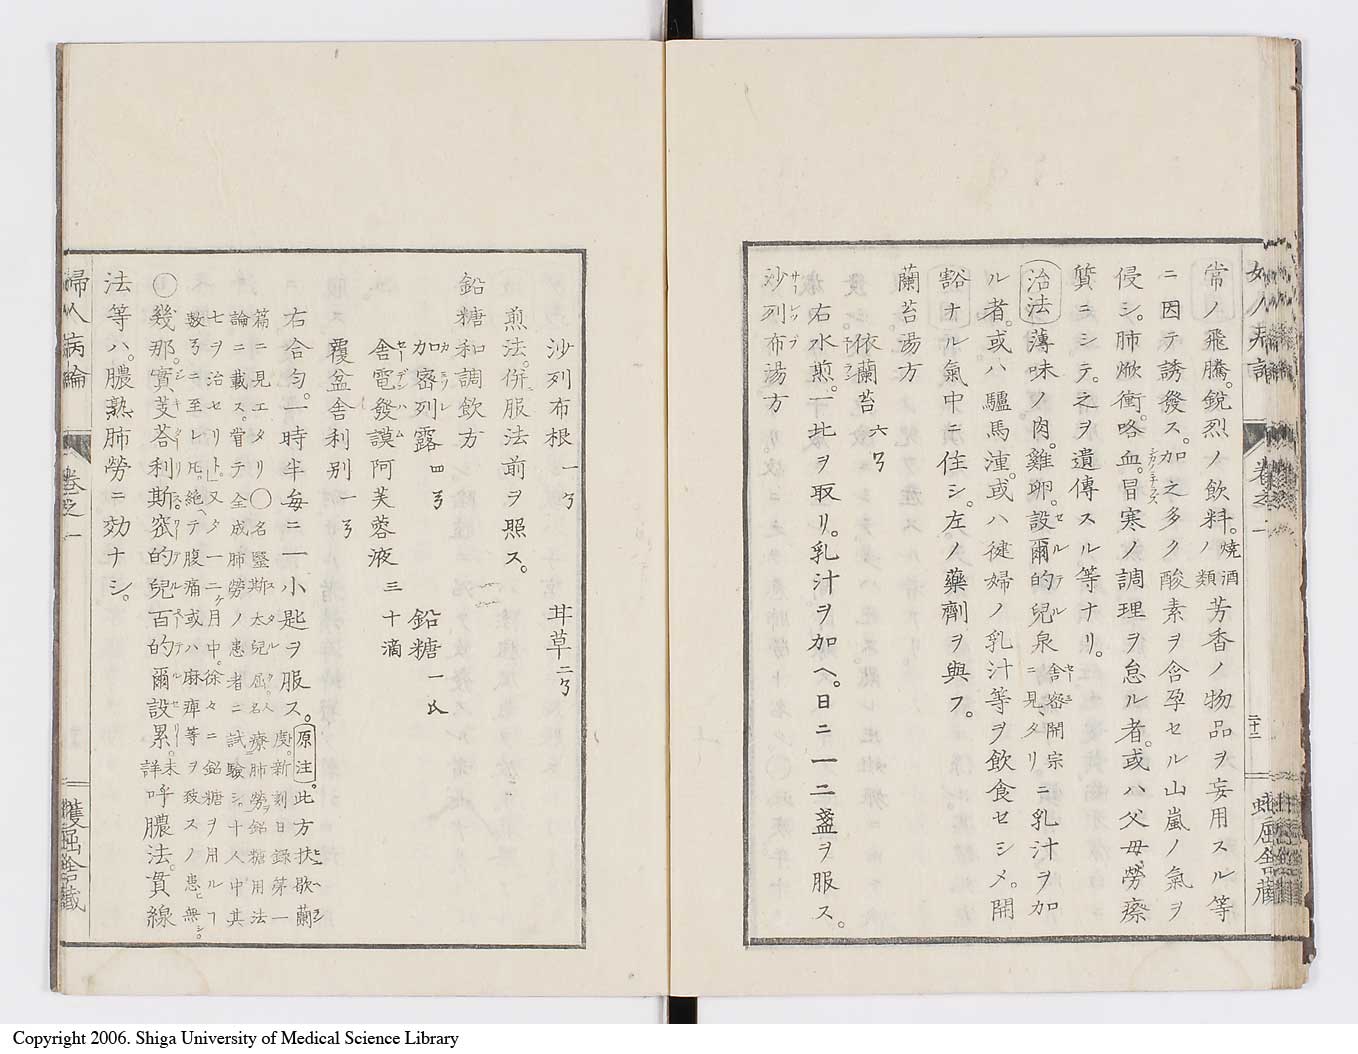 常ノ飛騰。銳烈ノ飲料。燒酒ノ類芳香ノ物品ヲ妄用スル等
ニ因テ誘發ス。加之多ク酸素ヲ含孕セル山嵐ノ氣ヲ
侵シ。肺焮衝。咯血。冒寒ノ調理ヲ怠ル者。或ハ父母勞瘵
質ニシテ。之ヲ遺傳スル等ナリ。
治法薄味ノ肉。雞卵。設爾的兒泉舍密開宗ニ見タリニ乳汁ヲ加
ル者。或ハ驢馬湩。或ハ健婦ノ乳汁等ヲ飲食セシメ。開
豁ナル氣中ニ住シ。左ノ藥劑ヲ與フ。
蘭苔湯方
依蘭苔六ヲ
右水煎。一㪷ヲ取リ。乳汁ヲ加ヘ。日ニ一二盞ヲ服ス。
沙列布湯方
婦人病論 卷之一
沙列布根一 苷草二
煎法。併服法前ヲ照ス。
鉛糖和調飲方
加密列露四 鉛糖一氏
舎電發謨阿芙蓉液三十滴
覆盆舎利別一
右合勻。一時半每ニ一小匙ヲ服ス。原注。此方扶歇蘭
篇ニ見エタリ〇名醫斯太兒屈人名 度。新刻日錄第一
論ニ載ス。嘗テ全成肺勞ノ患者ニ試驗シ。十人中其
七ヲ治セリト又タ一二月中。徐々ニ鉛糖ヲ用ル
數ニ至レ𪜈。絕テ腹痛或ハ麻痺等ヲ致スノ患無シ。
〇幾那。實芰荅利斯。宻的兒百的爾設累。未詳呼膿法。貫線
法等ハ。膿熟肺勞ニ効ナシ。
婦人病論 卷之一